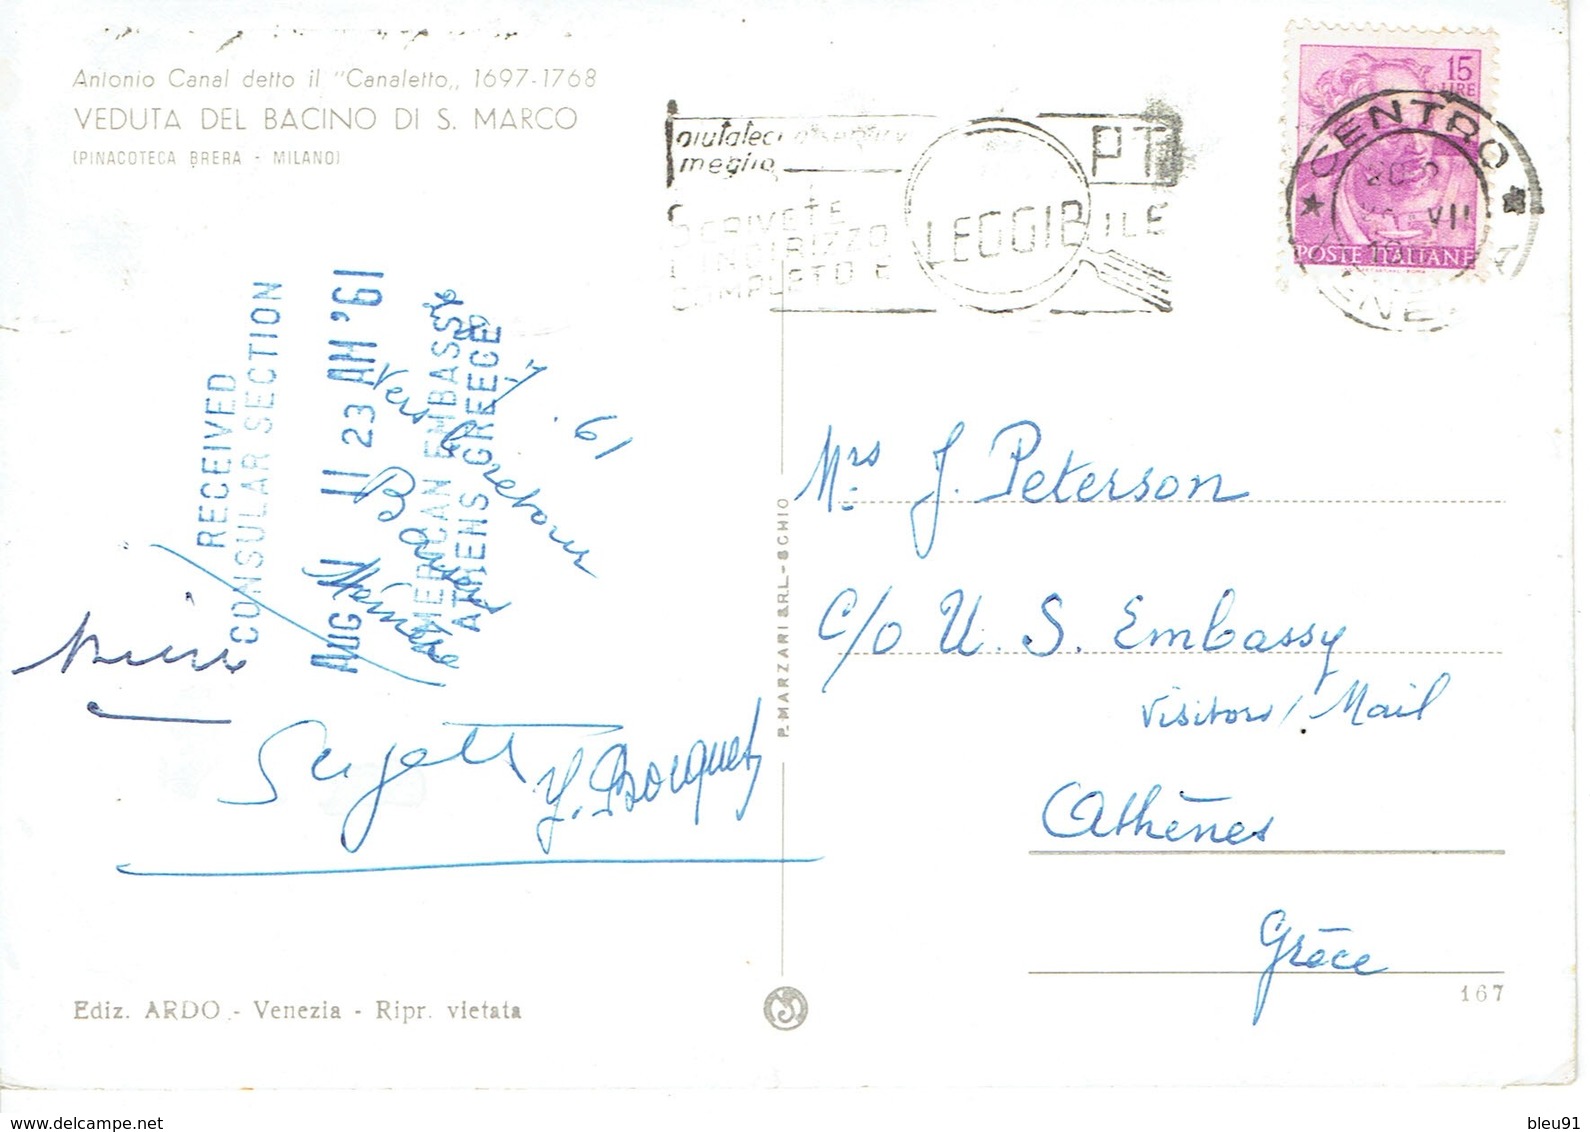 Antonio Canal detto il "Canaletto,, 1697-1768
VEDUTA DEL BACINO DI S. MARCO
(PINACOTECA BRERA - MILANO)
aiutateci
meglio
PT
SCRIVETE
L'INDIRIZZO
COMPLETO E LEGGIBILE
15
LIRE
POSTE ITALIANE
CENTRO
VII
RECEIVED
CONSULAR SECTION
AUG 11 11 23 AM '61
AMERICAN EMBASSY
ATHENS GREECE
61
Y. Bocquet
P. MARZARI S.R.L. - SCHIO
Mrs J. Peterson
c/o U. S. Embassy
Visitors' Mail
Athènes
Grèce
167
Ediz. ARDO - Venezia - Ripr. vietata
delcampe.net
bleu91